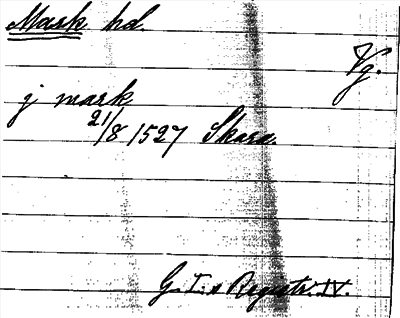 Mark hd.
Vg.
j mark
21/8 1527 Skara.
G. I.s Registr. IV.